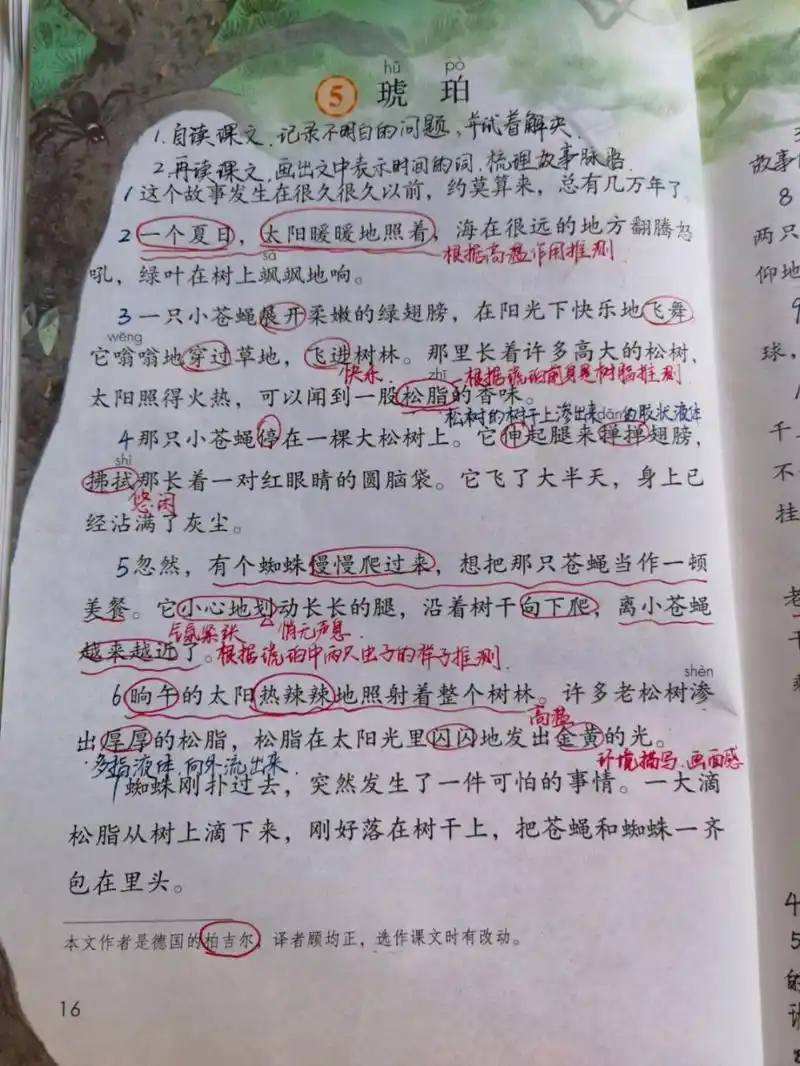 hǔ pò
5 琥 珀
1.自读课文,记录不明白的问题,尝试着解决.
2.再读课文,画出文中表示时间的词,梳理故事脉络.
1 这个故事发生在很久很久以前,约莫算来,总有几万年了。
2 一个夏日,太阳暖暖地照着,海在很远的地方翻腾怒
根据高温作用推测
sà
吼,绿叶在树上飒飒地响。
3 一只小苍蝇展开柔嫩的绿翅膀,在阳光下快乐地飞舞,
wēng
它嗡嗡地穿过草地,飞进树林。那里长着许多高大的松树,
快乐
zhī
根据琥珀的前身是树脂推测
太阳照得火热,可以闻到一股松脂的香味。
松树的树干上渗出来的胶状液体
dǎn
4 那只小苍蝇停在一棵大松树上。它伸起腿来掸掸翅膀,
shì
拂拭那长着一对红眼睛的圆脑袋。它飞了大半天,身上已
悠闲
经沾满了灰尘。
5 忽然,有个蜘蛛慢慢爬过来,想把那只苍蝇当作一顿
美餐。它小心地划动长长的腿,沿着树干向下爬,离小苍蝇
气氛紧张 悄无声息.
越来越近了。
根据琥珀中两只虫子的样子推测.
shèn
6 晌午的太阳热辣辣地照射着整个树林。许多老松树渗
高温
出厚厚的松脂,松脂在太阳光里闪闪地发出金黄的光。
多指液体,向外流出来.
环境描写.画面感
7 蜘蛛刚扑过去,突然发生了一件可怕的事情。一大滴
松脂从树上滴下来,刚好落在树干上,把苍蝇和蜘蛛一齐
包在里头。
本文作者是德国的柏吉尔,译者顾均正,选作课文时有改动。
16
故事
8
两只
仰地
9
球,
千
不
挂
老
4
5
的